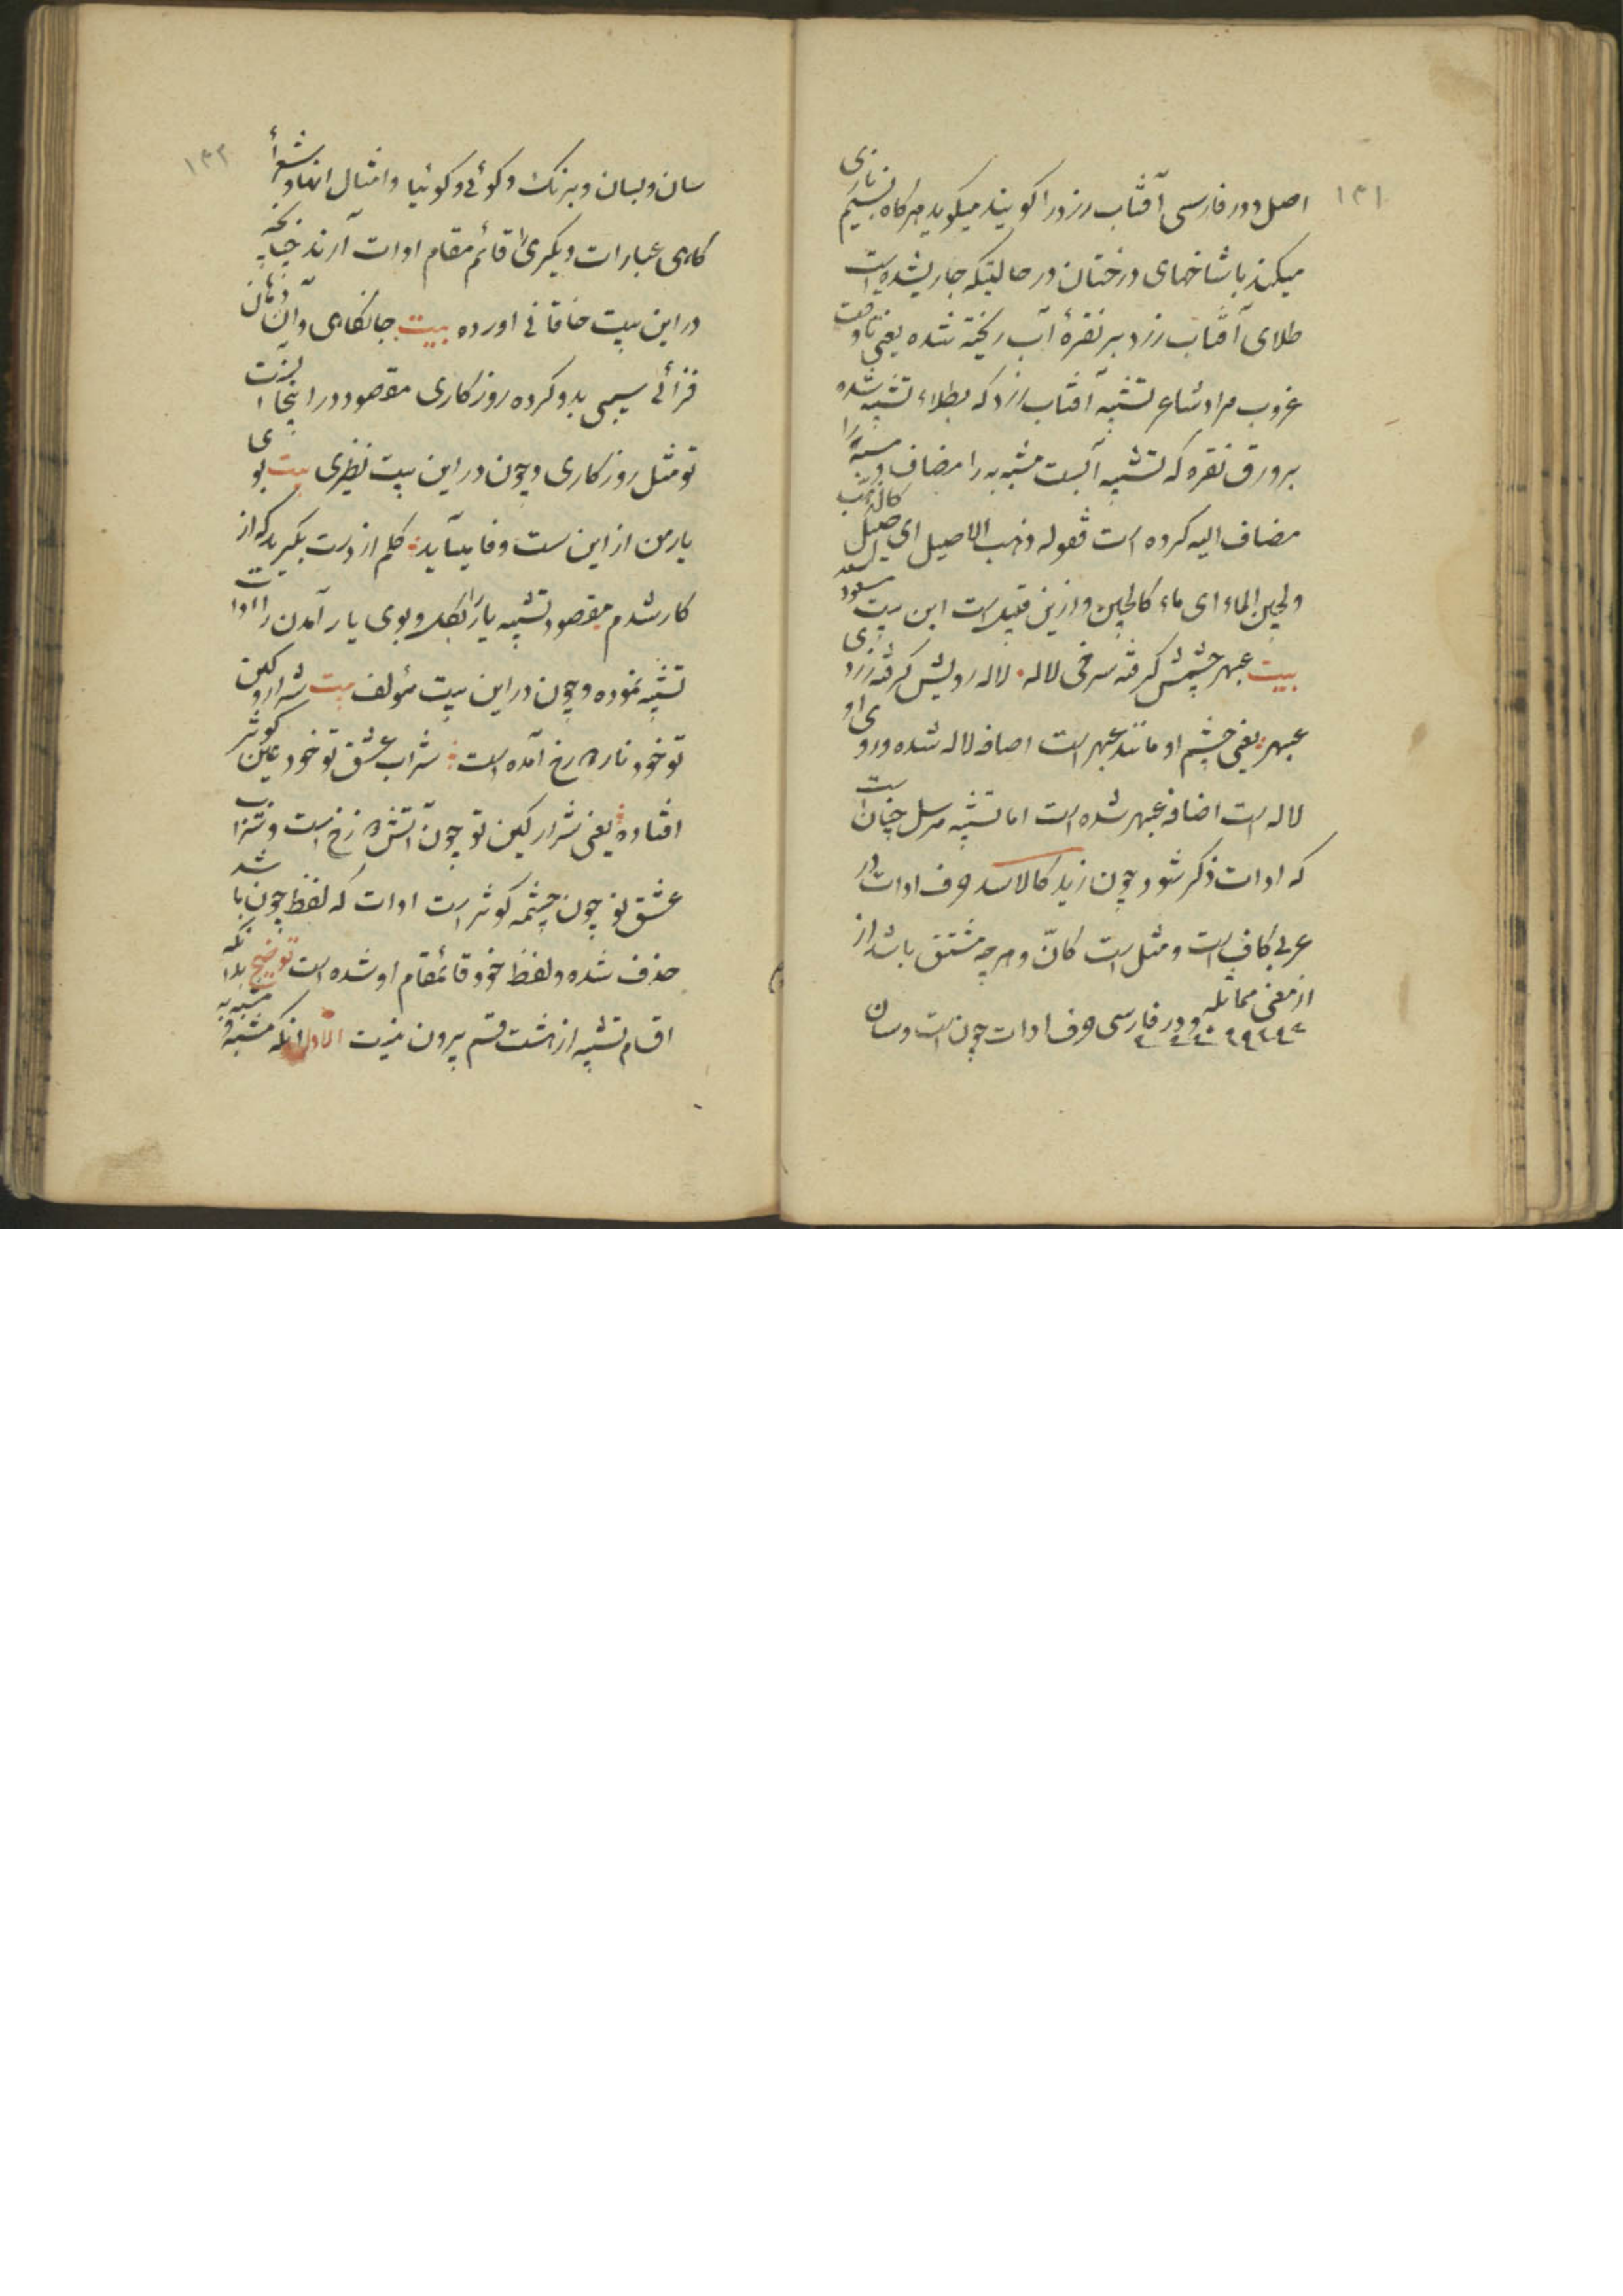 ١٣١
اصل و در فارسی آفتاب زرد را گویند میگوید هرگاه نسیم بازی
میکند با شاخهای درختان در حالتیکه جاریشده است
طلای آفتاب زرد بر نقرهٔ آب ریخته شده یعنی تا وقت
غروب مراد شاعر تشبیه آفتاب زرد که بطلاء تشبیه شده
بر ورق نقره که تشبیه آبست مشبه به را مضاف و مشبه را
مضاف الیه کرده است فقوله ذهب الاصیل ای اصیل کالذهب
ولجین الماء ای ماء کاللجین و ازین قبیل است این بیت مسعود سعد
بیت عبهر چشمش گرفته سرخی لاله ۰ لاله رویش گرفته زردی
عبهر یعنی چشم او مانند عبهر است اضافه لاله شده و روی او
لاله است اضافه عبهر شده است اما تشبیه مرسل چنان است
که ادات ذکر شود چون زید کالاسد حرف ادات در
عربی کاف است و مثل است کانّ و هرچه مشتق باشد از
از معنی مماثله و در فارسی حرف ادات چون است و سان
١٣٢
سان و بسان و برنک و کوئی و کوئیا و امثال انها و شعرأ
کاهی عبارات دیکری را قائم مقام ادات آرند چنانچه
در این بیت خاقانی اورده بیت جانکاهی و آن زمان
فزائی سیبی بدو کرده روزکاری مقصود در اینجا اینست
تو مثل روزکاری و چون در این بیت نظیری بیت بوی
یار من از این سست وفا میآید کلم از دست بکیرید که از
کار شدم مقصود تشبیه یار را بکل و بوی یار آمدن را ادات
تشبیه نموده و چون در این بیت مؤلف بیت شرار کین
تو خود نار دوزخ آمده است شراب عشق تو خود عین کوثر
افتاده یعنی شرار کین تو چون آتش دوزخ است و شراب
عشق تو چون چشمه کوثر است ادات که لفظ چون باشد
حذف شده و لفظ خود قائمقام او شده است توضیح بدانکه
اقسام تشبیه از هشت قسم بیرون نیست الاول انکه مشبه و مشبه به